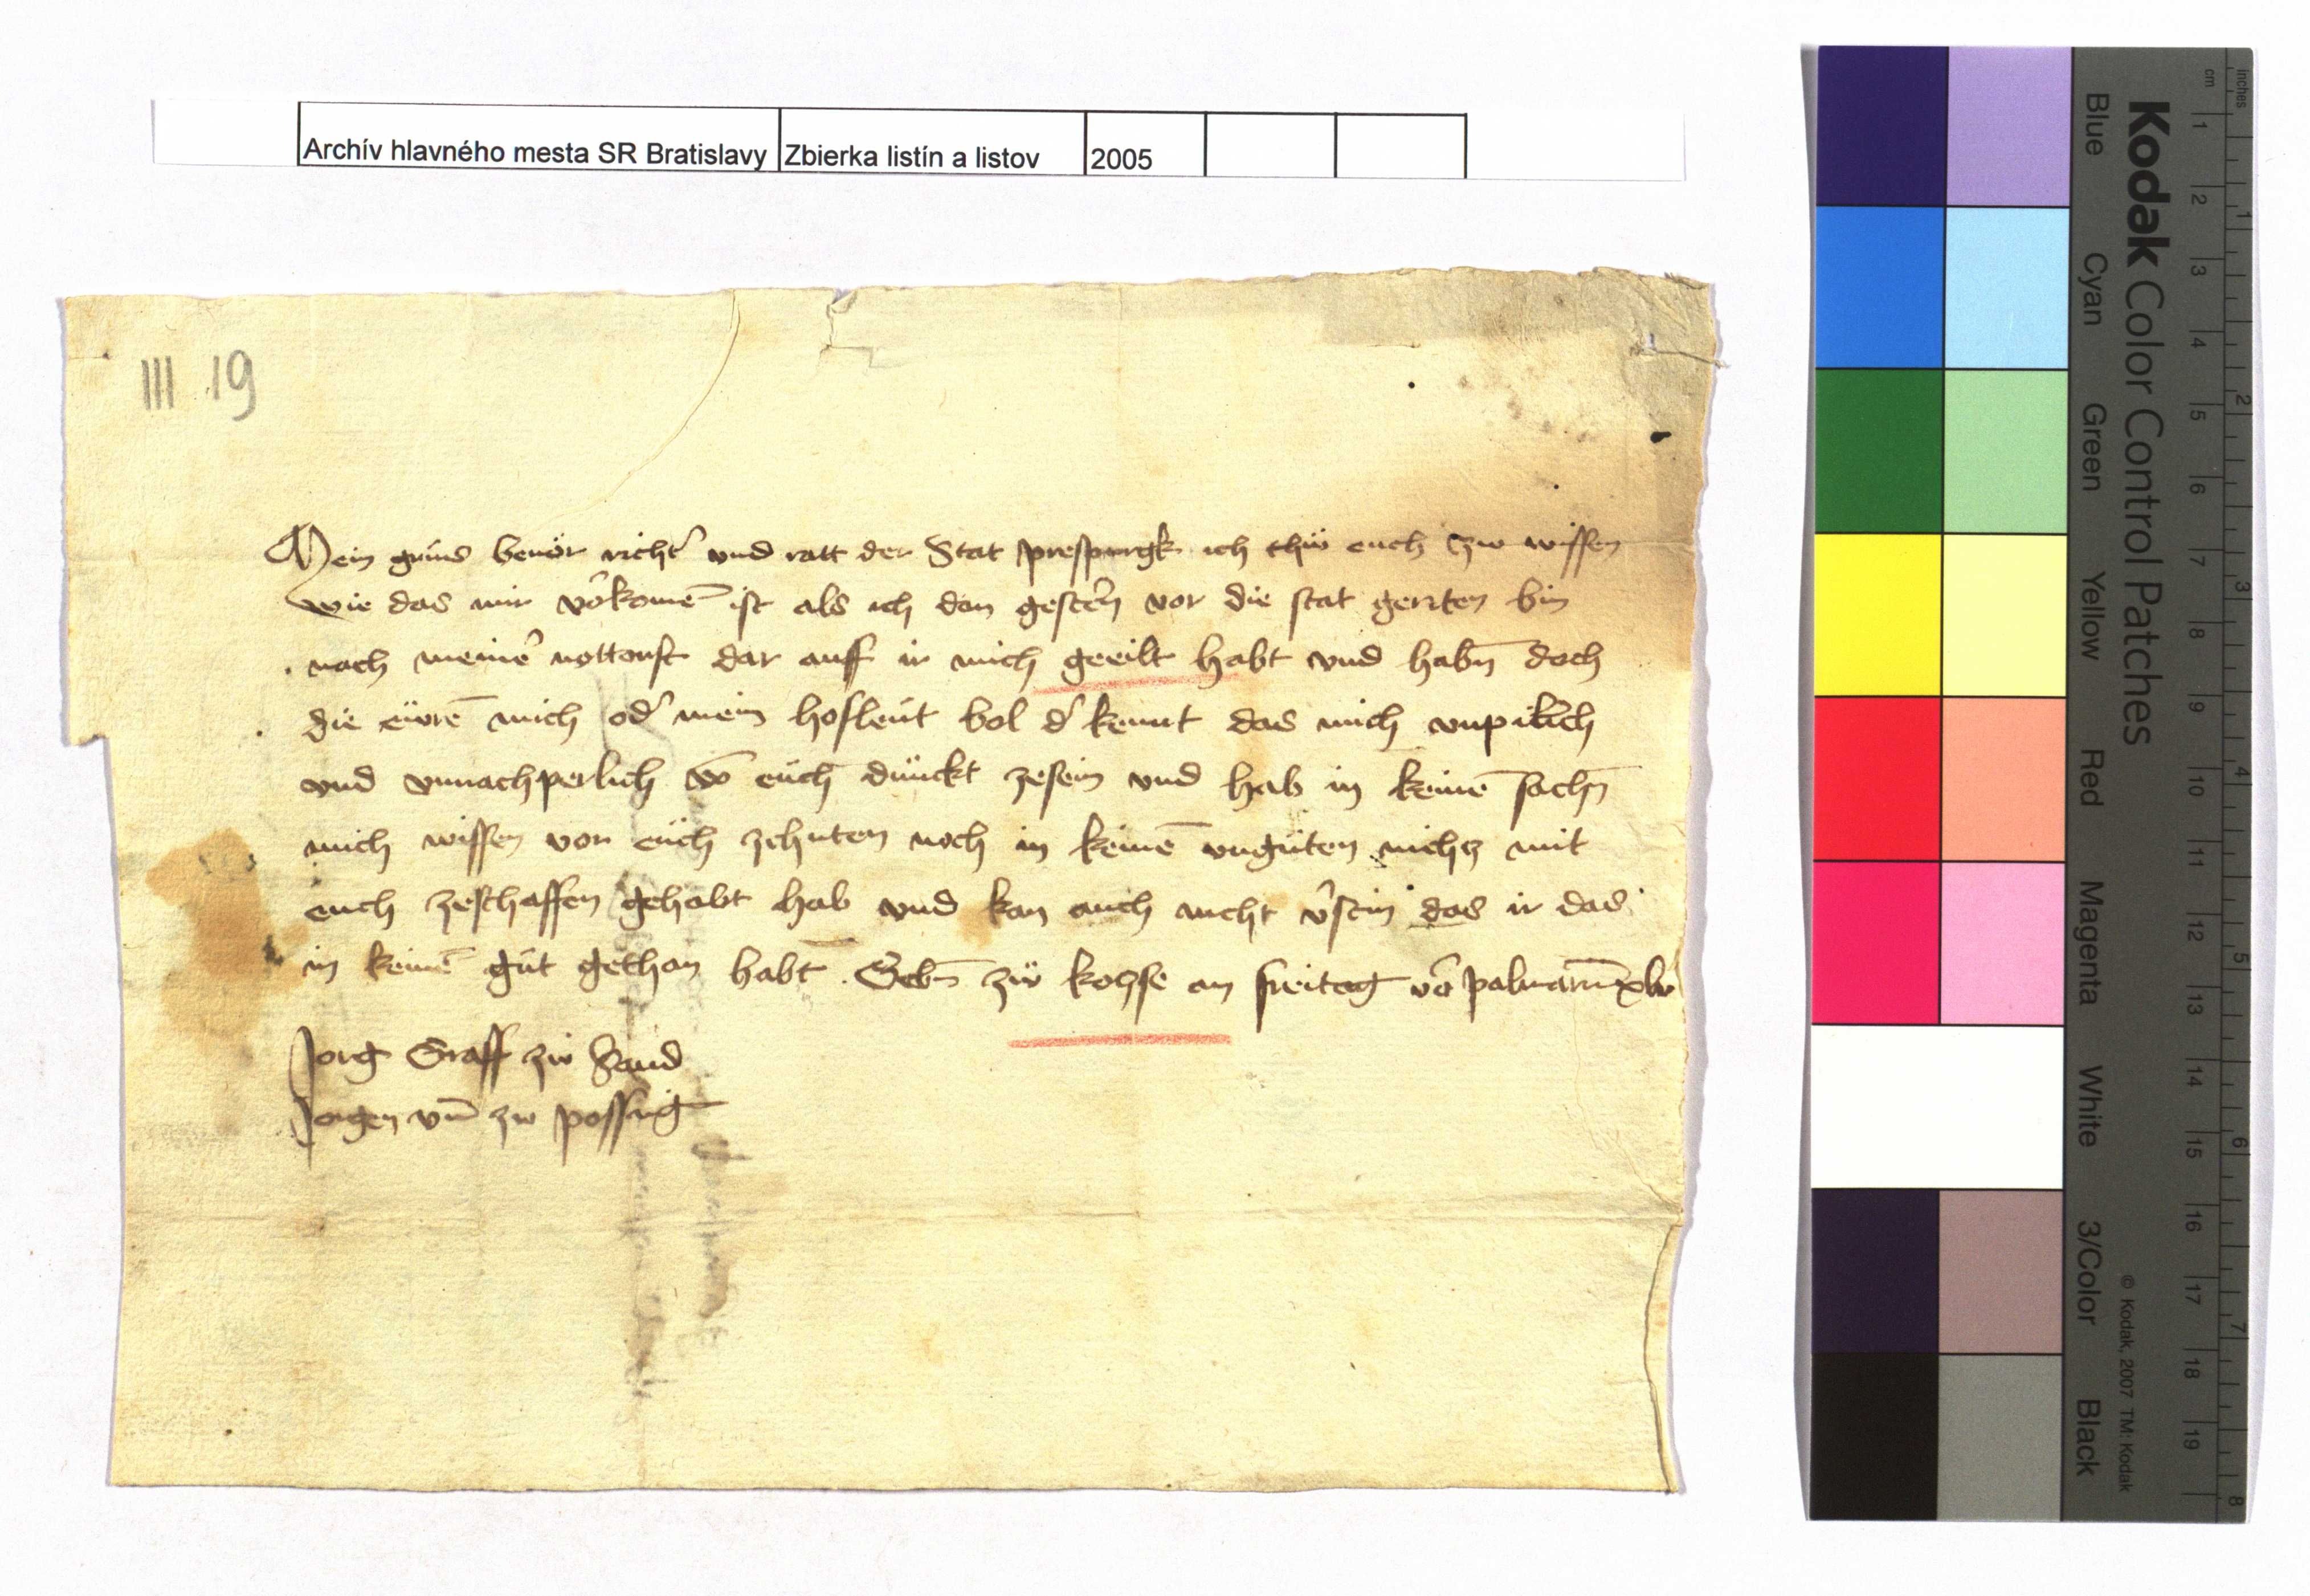 Archív hlavného mesta SR Bratislavy Zbierka listín a listov 2005
III 19
Mein grüs beuör richt̓ vnd ratt der Stat prespurgk ich thü euch zw wissen
wie das mir vo̓komē ist als ich dan geste̓n vor die stat geriten bin
nach meine̓ nottorft dar auff ir mich geeilt habt vnd habn̄ doch
die eürē mich od̓ mein hofleüt bol d̓ kennt das mich vnpilich
vnd vnnachperlich vō eüch dünckt zesein vnd hab in keinē sachn̄
mich wissen vor eüch zehuten noch in keinē vngüten nichz mit
euch zeschaffen gehabt hab vnd kan auch nicht v̓stin das ir das
in keinē güt gethan habt. Gebn̄ zü kohse an freitag vo̓ palmarū xlv
Jorg Graff zü Sand
Jorgen vn̄ zw possing
Kodak Color Control Patches
Blue Cyan Green Yellow Red Magenta White 3/Color Black
© Kodak, 2007 TM: Kodak
cm 1 2 3 4 5 6 7 8 9 10 11 12 13 14 15 16 17 18 19
inches 1 2 3 4 5 6 7 8